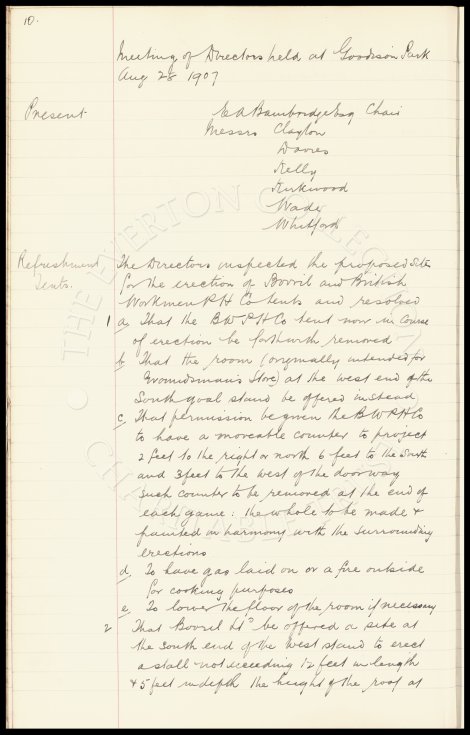 10.
Meeting of Directors held at Goodison Park
Aug 28 1907
Present E A Bainbridge Esq Chair
Messrs Clayton
Davies
Kelly
Kirkwood
Wade
Whitford
Refreshment Tents. The Directors inspected the proposed site
for the erection of Bovril and British
Workmen P H Co tents and resolved
1 a That the B W P H Co tent now in course
of erection be forthwith removed
b That the room (originally intended for
Groundsmans Store) at the west end of the
South goal stand be offered instead
c That permission be given the B W P H Co
to have a moveable counter to project
2 feet to the right or north 6 feet to the south
and 3 feet to the west of the doorway
such counter to be removed at the end of
each game: the whole to be made &
painted in harmony with the surrounding
erections
d To have gas laid on or a fire outside
for cooking purposes
e To lower the floor of the room if necessary
2 That Bovril Ltd be offered a site at
the south end of the west stand to erect
a stall not exceeding 12 feet in length
& 5 feet in depth the height of the roof at
THE EVERTON COLLECTION
CHARITABLE